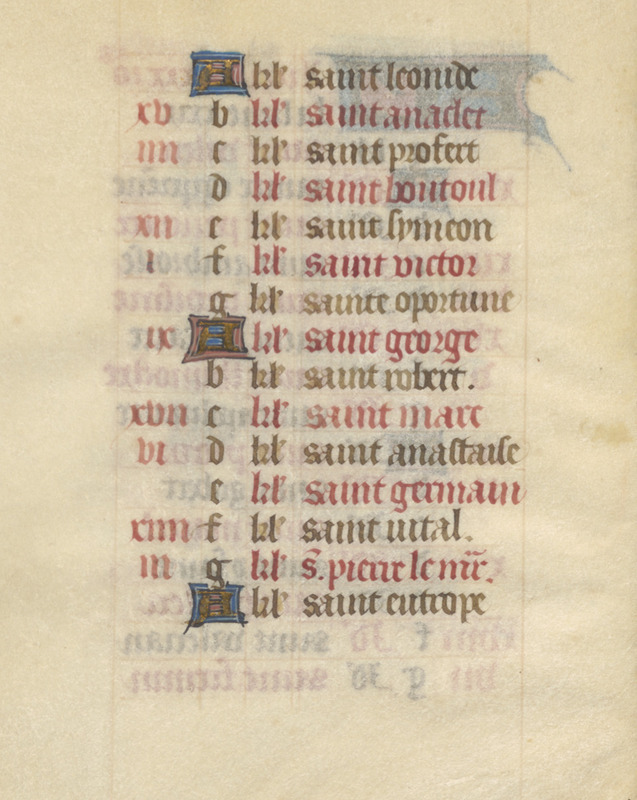 A kl' saint leonide
xv b kl' saint anaclet
iiii c kl' saint profect
d kl' saint boutoul
xii e kl' saint symeon
i f kl' saint victor
g kl' sainte oportune
ix A kl' saint george
b kl' saint robert.
xvii c kl' saint marc
vi d kl' saint anastaise
e kl' saint germain
xiiii f kl' saint vital.
iii g kl' s. pierre le mr̄.
A kl' saint eutrope